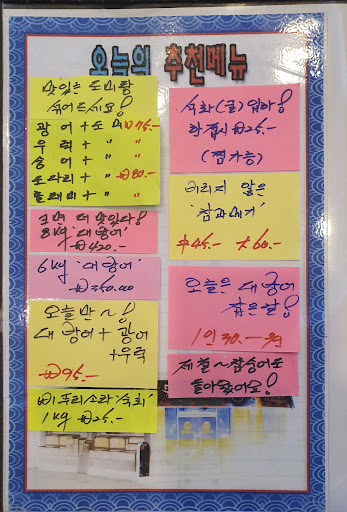 오늘의 추천메뉴
맛있는 도미랑
섞어드세요!
광어+도미 ₩75.-
우럭+ 〃 〃
숭어+ 〃 〃
도다리+ 〃 ₩80.-
놀래미+ 〃 〃
크면 더 맛있다!
8kg '대광어'
₩420.-
6kg '대광어'
₩350.000
오늘만~!
대광어+광어
+우럭
₩95.-
삐뚜리소라 '숙회'
1kg ₩25.-
석화(굴) 입하!
한접시 ₩25.-
(찜가능)
비리지 않은
'참과메기'
小45.- 大60.-
오늘은 대광어
잡은날!
1인 30.-원
제철~참숭어도
돌아왔어요!